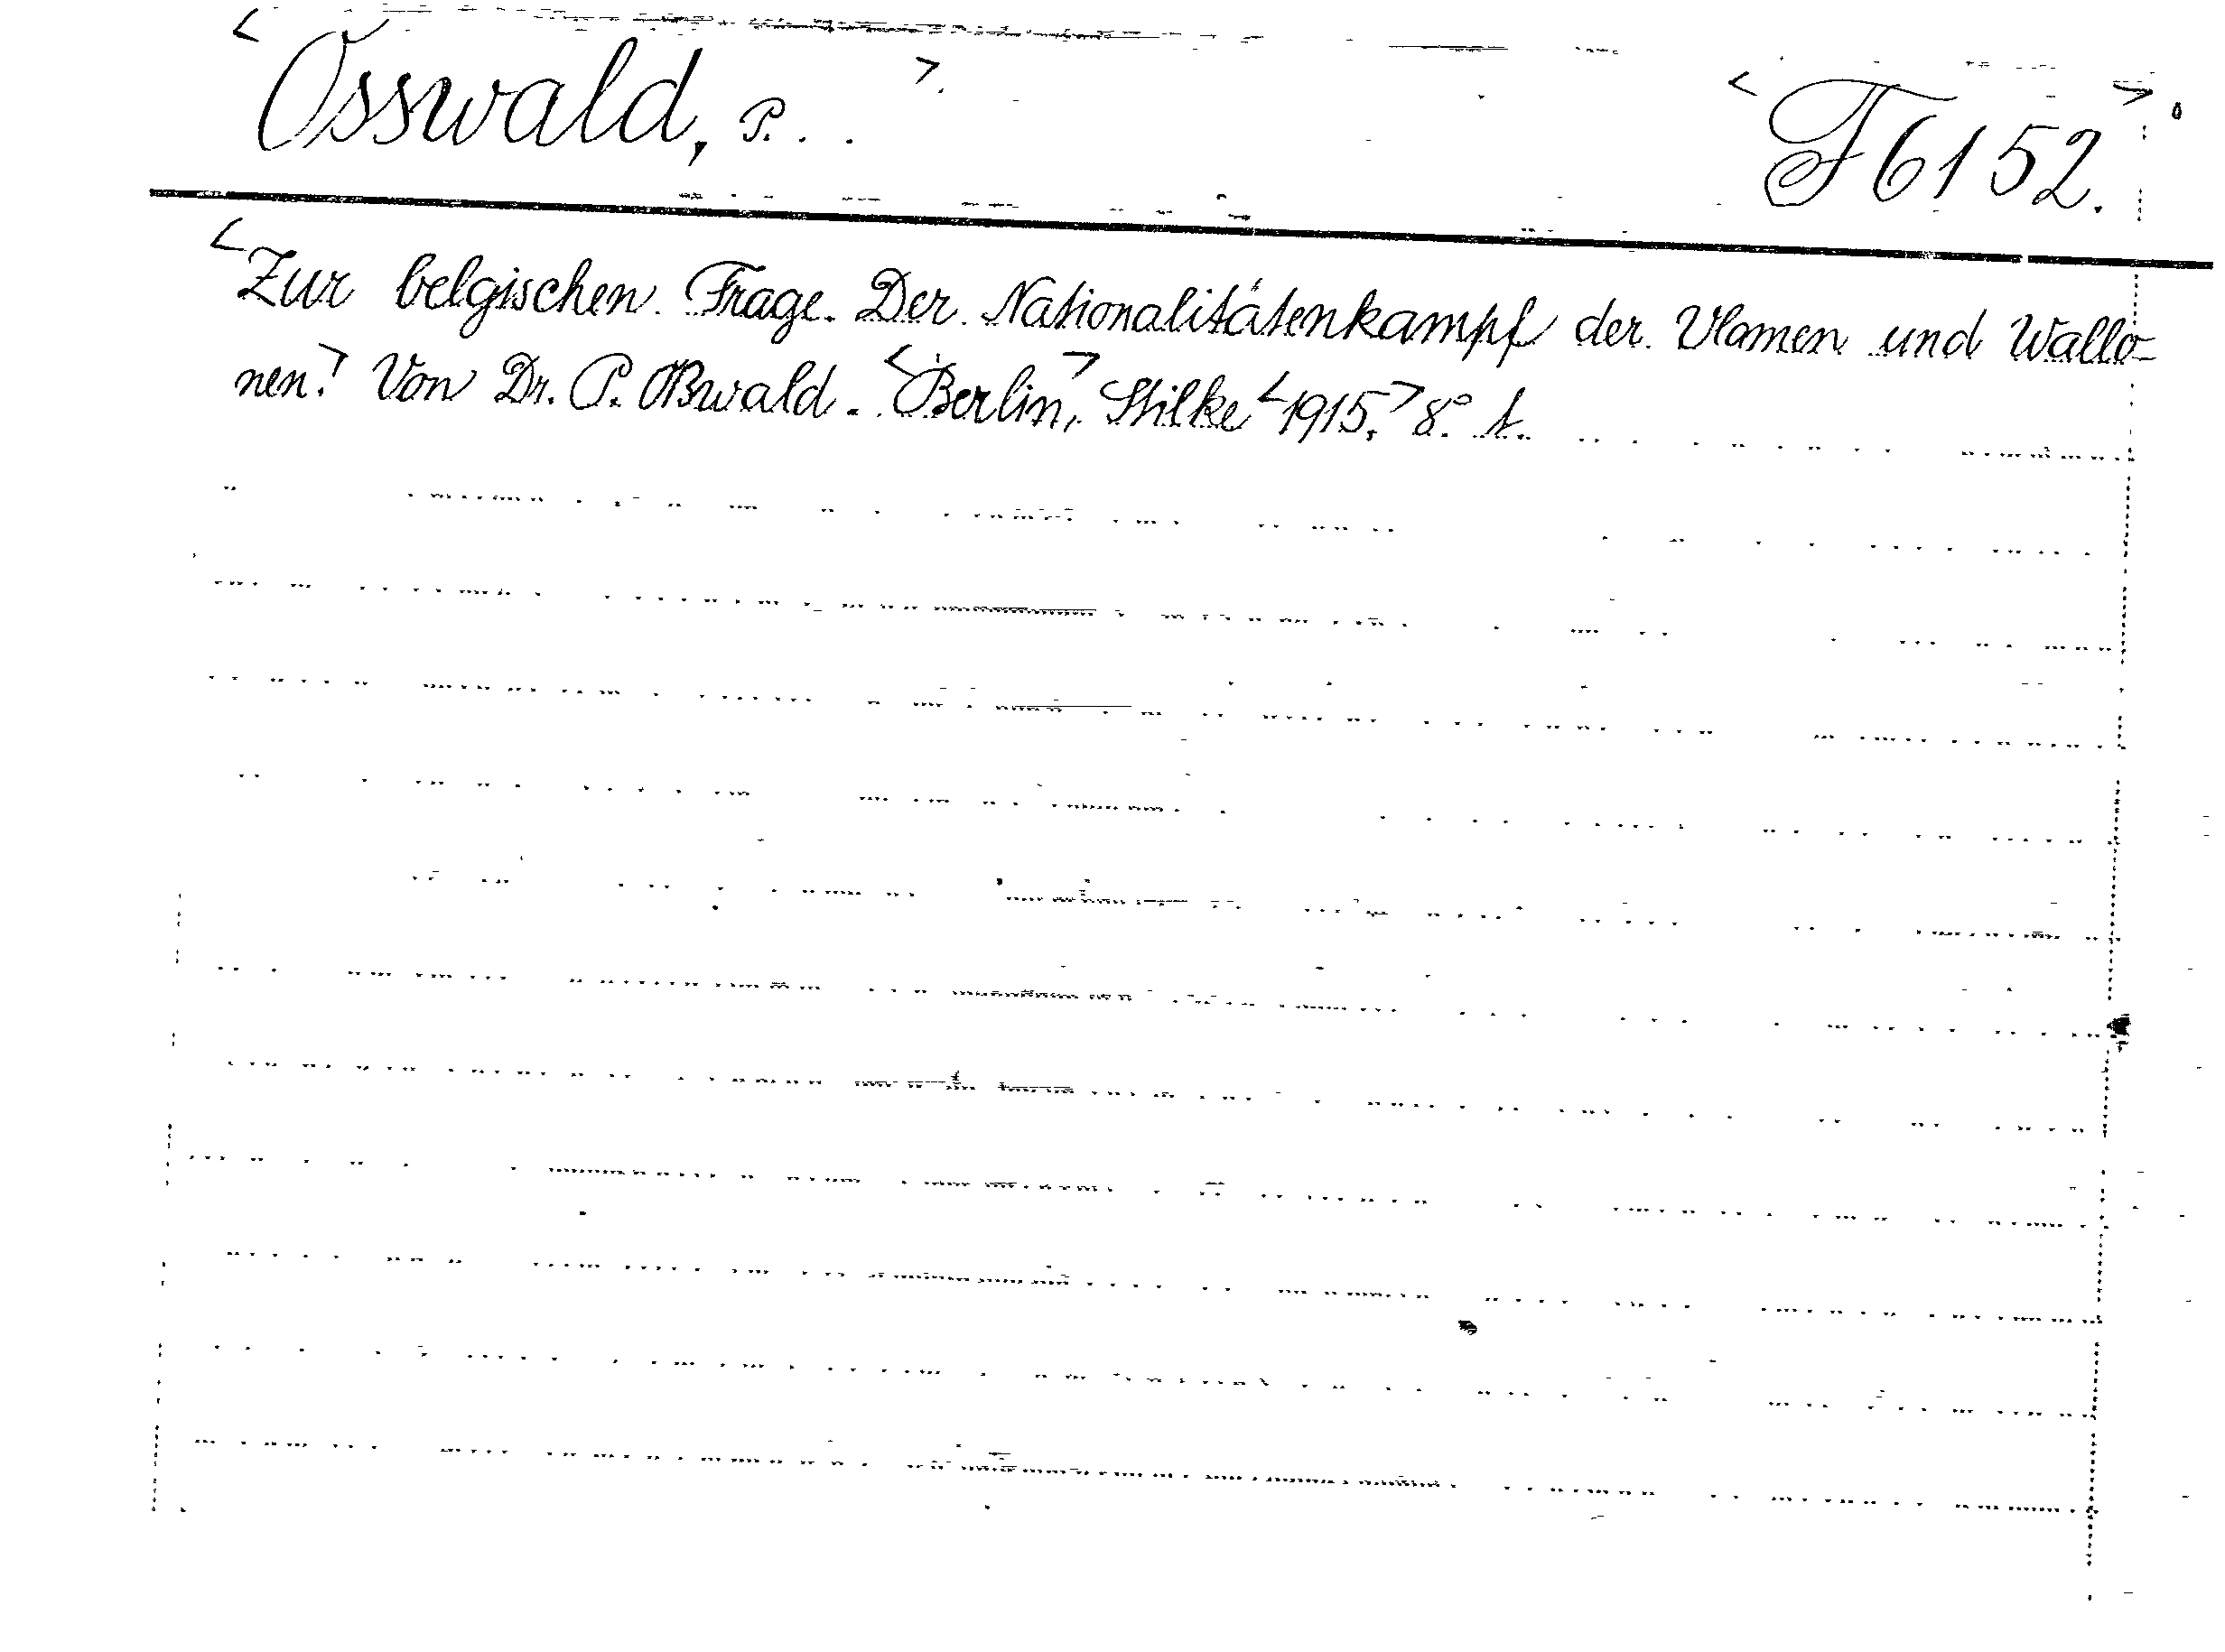 <Osswald, P. . . >. <F 6152. >.
<Zur belgischen Frage. Der Nationalitätenkampf der Vlamen und Wallo-
nen.> Von Dr. P. Oßwald. <Berlin,> Stilke <1915.> 8°.